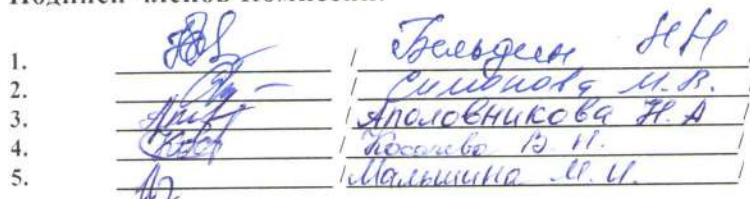 Подписи членов комиссии:
1. / Бельдин Н Н /
2. / Симонова М. В. /
3. / Аполовникова Н. А /
4. / Косачева В. Н. /
5. / Малышина М. И. /